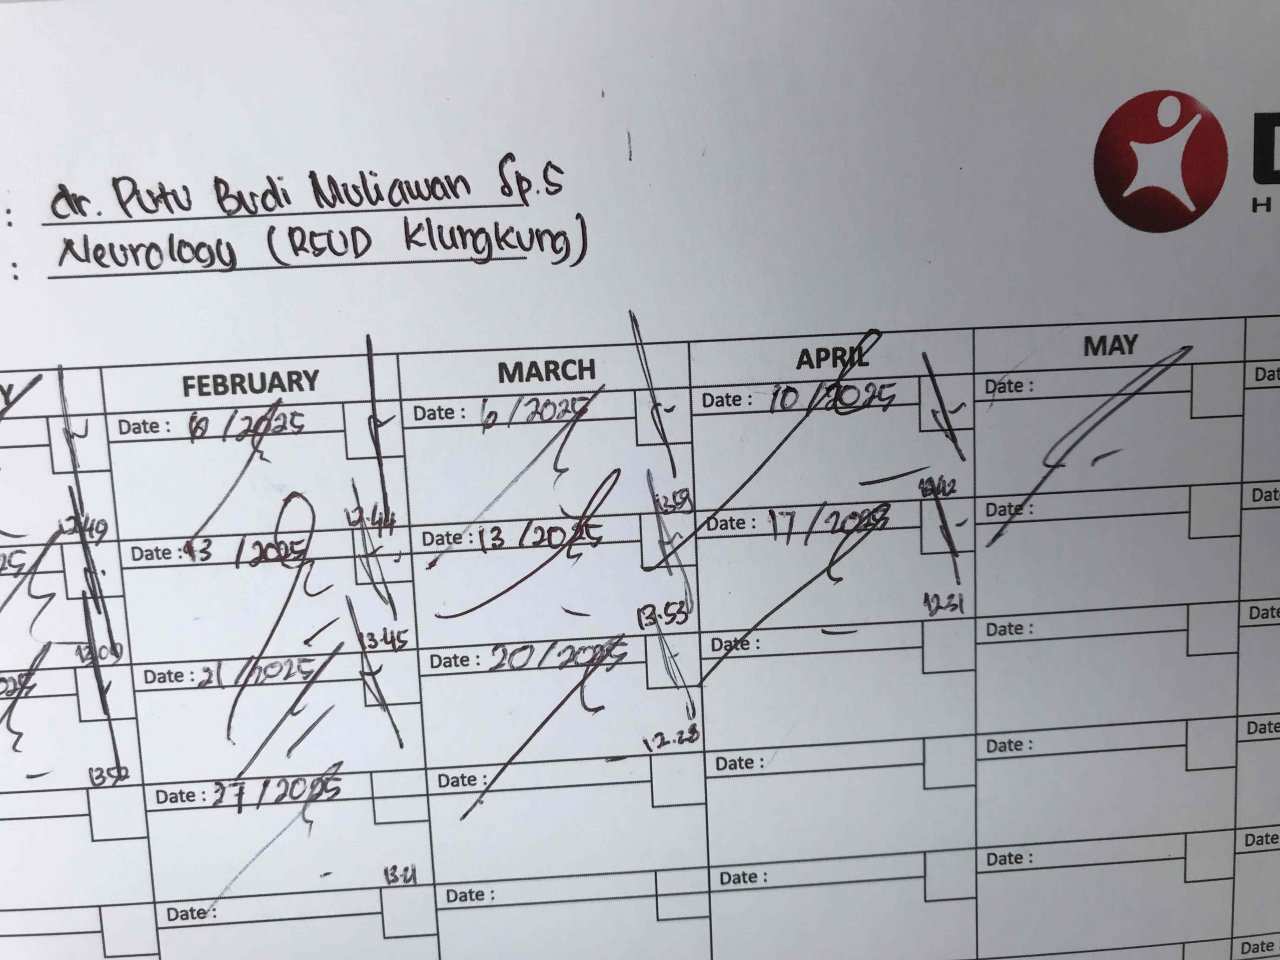 : dr. Putu Budi Muliawan Sp.S
: Neurology (RSUD Klungkung)
H
FEBRUARY MARCH APRIL MAY
Date : 6 /2025 Date : 6 /2025 Date : 10 /2025 Date : Dat
12.49 12.44 13.59
Date : 13 /2025 Date : 13 /2025 Date : 17 /2025 Date : Dat
13.45 13.53 12.31
Date : 21/2025 Date : 20/2025 Date : Date : Date
1352 12.28
Date : 27/2025 Date : Date : Date : Date
13.21
Date : Date : Date : Date : Date
Date